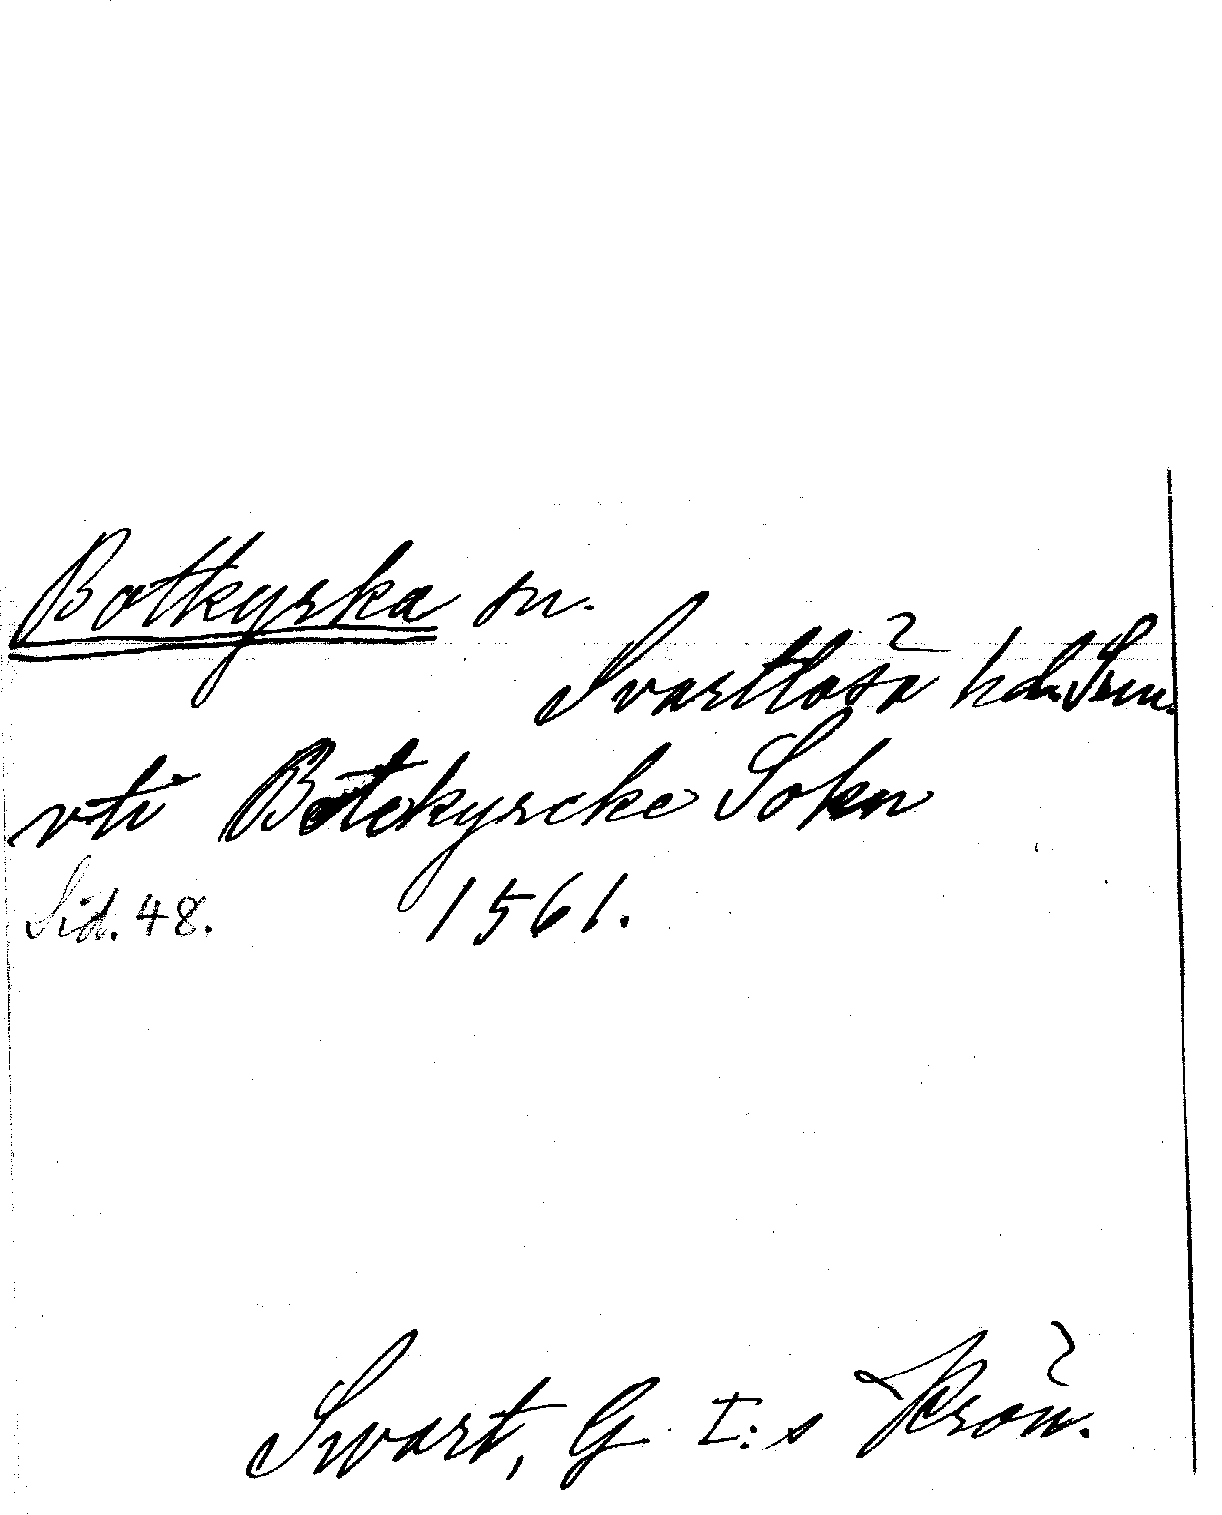 Botkyrka sn.
Svartlösa hd. Srm.
vti Botekyrcke Sokn
Sid. 48. 1561.
Swart, G I:s Krön.